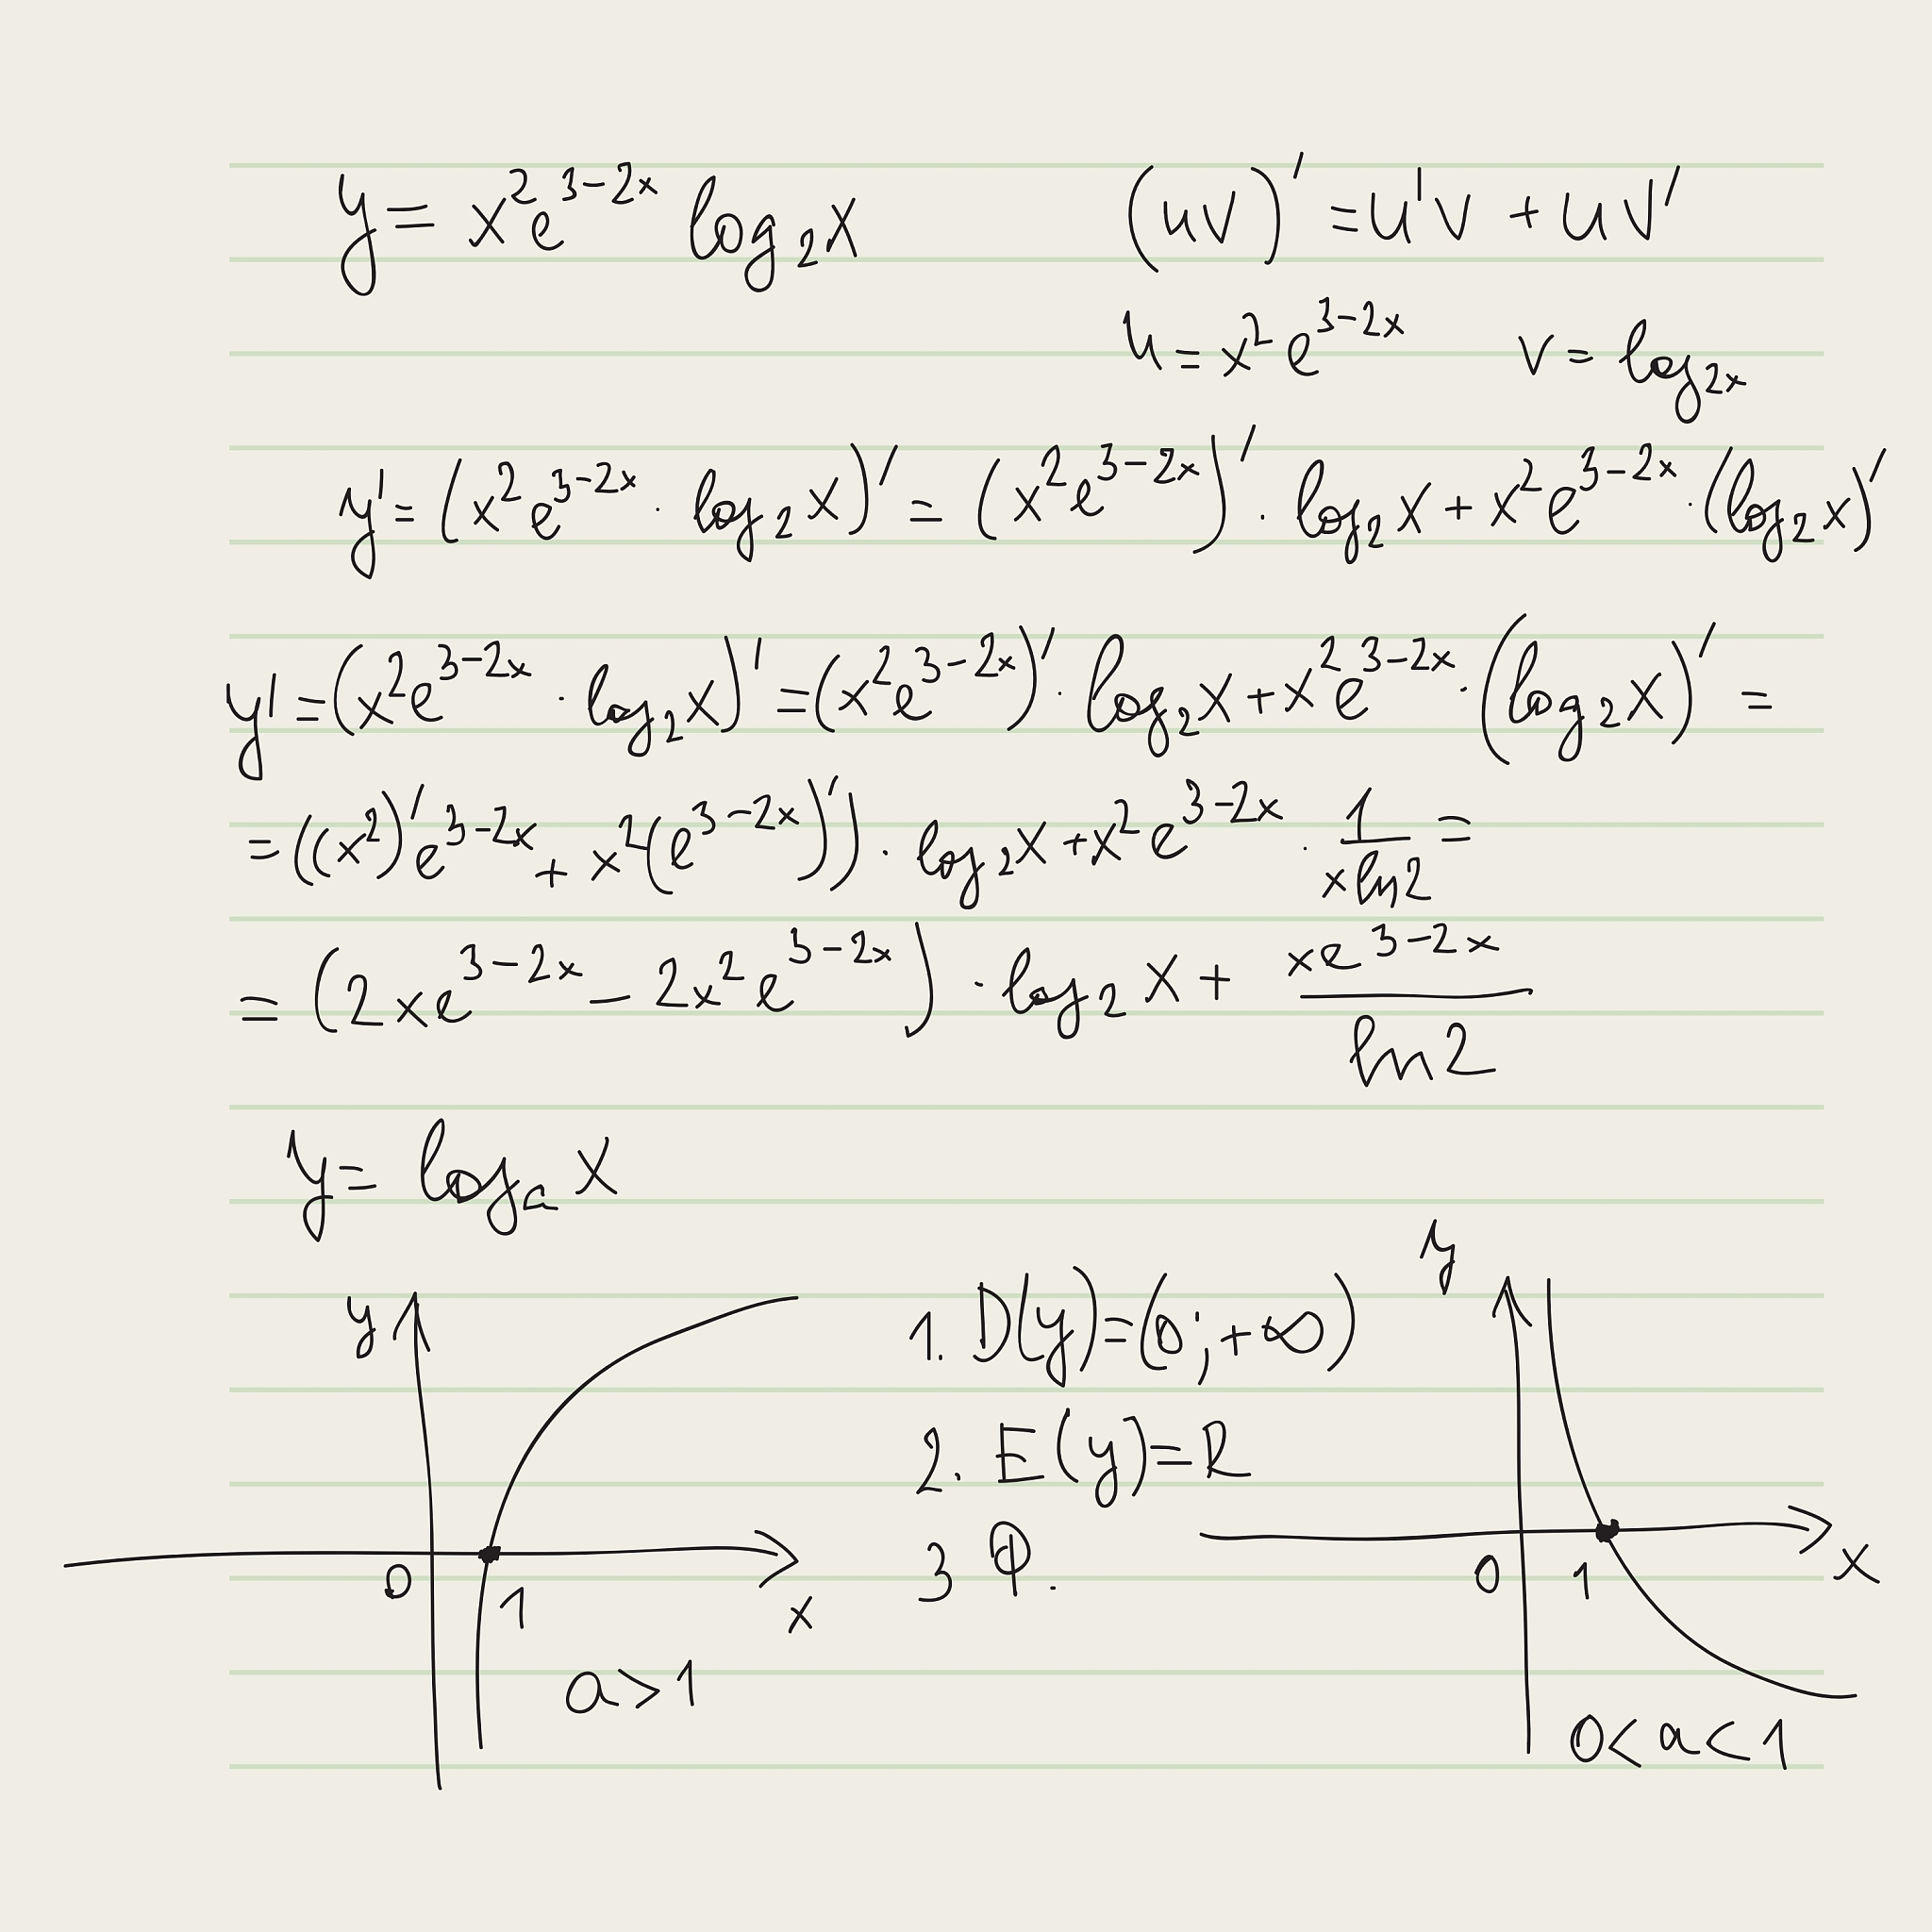 y = x²e³⁻²ˣ log₂x (uv)' = u'v + uv'
u = x²e³⁻²ˣ v = log₂ₓ
y' = (x²e³⁻²ˣ · log₂x)' = (x²e³⁻²ˣ)' · log₂x + x²e³⁻²ˣ · (log₂x)'
y' = (x²e³⁻²ˣ · log₂x)' = (x²e³⁻²ˣ)' · log₂x + x²e³⁻²ˣ · (log₂x)' =
= ((x²)'e³⁻²ˣ + x²(e³⁻²ˣ)') · log₂x + x²e³⁻²ˣ · 1/(x ln2) =
= (2xe³⁻²ˣ − 2x²e³⁻²ˣ) · log₂x + xe³⁻²ˣ/ln2
y = logₐ x
y 1. D(y)=(0;+∞) y
2. E(y)=R
0 1 x 3 Ф. 0 1 x
a>1 0<a<1